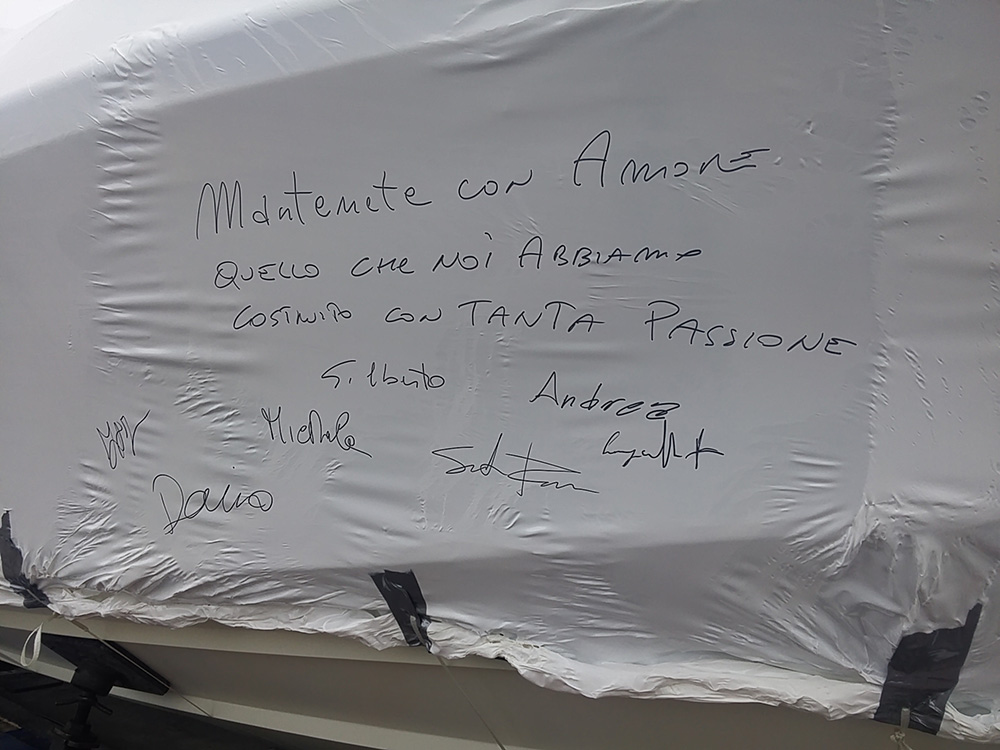 Mantenete con Amore
QUELLO CHE NOI ABBIAMO
COSTRUITO CON TANTA PASSIONE
Gilberto
Andrea
Michele
Dario